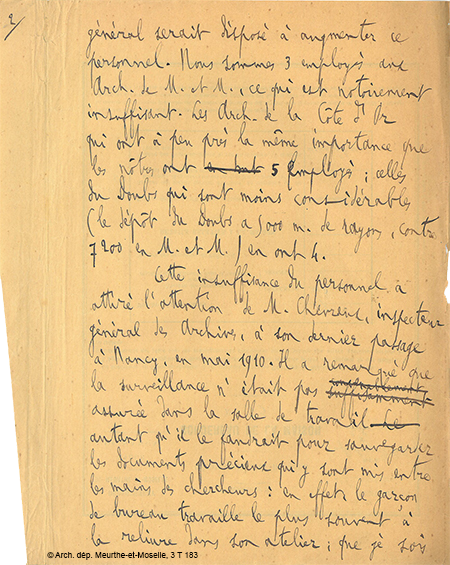 2/
général serait disposé à augmenter ce
personnel. Nous sommes 3 employés aux
Arch. de M. et M., ce qui est notoirement
insuffisant. Les Arch. de la Côte d'Or
qui ont à peu près la même importance que
les nôtres ont 5 Employés ; celles
du Doubs qui sont moins considérables
(le dépôt du Doubs a 5000 m. de rayons, contre
7200 en M. et M.) en ont 4.
Cette insuffisance du personnel a
attiré l'attention de M. Chevreux, inspecteur
général des Archives, à son dernier passage
à Nancy, en mai 1910. Il a remarqué que
la surveillance n'était pas suffisamment
assurée dans la salle de travail
autant qu'il le faudrait pour sauvegarder
les documents précieux qui y sont mis entre
les mains des chercheurs : en effet le garçon
de bureau travaille le plus souvent à
la reliure dans son atelier ; que je sois
© Arch. dép. Meurthe-et-Moselle, 3 T 183